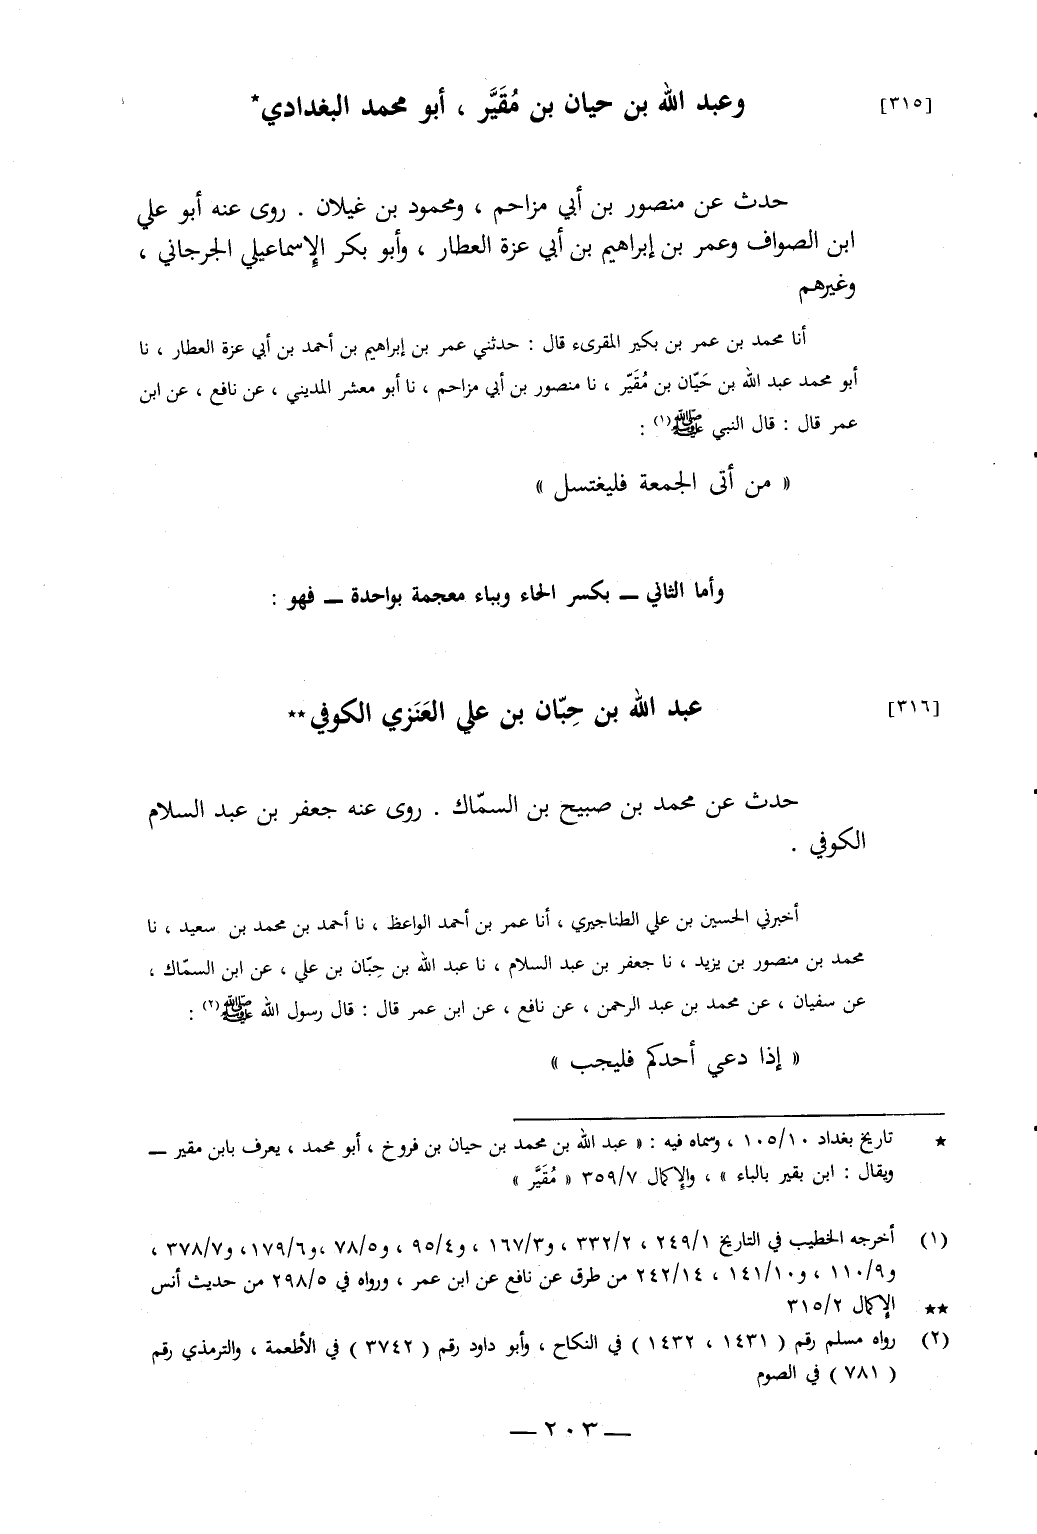 [٣١٥] وعبد الله بن حيان بن مُقَيَّر ، أبو محمد البغدادي*
حدث عن منصور بن أبي مزاحم ، ومحمود بن غيلان . روى عنه أبو علي
ابن الصواف وعمر بن إبراهيم بن أبي عزة العطار ، وأبو بكر الإسماعيلي الجرجاني ،
وغيرهم
أنا محمد بن عمر بن بكير المقرىء قال : حدثني عمر بن إبراهيم بن أحمد بن أبي عزة العطار ، نا
أبو محمد عبد الله بن حَيّان بن مُقَيّر ، نا منصور بن أبي مزاحم ، نا أبو معشر المديني ، عن نافع ، عن ابن
عمر قال : قال النبي ﷺ(١) :
« من أتى الجمعة فليغتسل »
وأما الثاني ــ بكسر الحاء وبباء معجمة بواحدة ــ فهو :
[٣١٦] عبد الله بن حِبّان بن علي العَنَزي الكوفي**
حدث عن محمد بن صبيح بن السمّاك . روى عنه جعفر بن عبد السلام
الكوفي .
أخبرني الحسين بن علي الطناجيري ، أنا عمر بن أحمد الواعظ ، نا أحمد بن محمد بن سعيد ، نا
محمد بن منصور بن يزيد ، نا جعفر بن عبد السلام ، نا عبد الله بن حِبّان بن علي ، عن ابن السمّاك ،
عن سفيان ، عن محمد بن عبد الرحمن ، عن نافع ، عن ابن عمر قال : قال رسول الله ﷺ(٢) :
« إذا دعي أحدكم فليجب »
★ تاريخ بغداد ١٠٥/١٠ ، وسماه فيه : « عبد الله بن محمد بن حيان بن فروخ ، أبو محمد ، يعرف بابن مقير ــ
ويقال : ابن بقير بالباء » ، والإكمال ٣٥٩/٧ « مُقَيَّر »
(١) أخرجه الخطيب في التاريخ ٢٤٩/١ ، ٣٣٢/٢ ، و١٦٧/٣ ، و٩٥/٤ ، و٧٨/٥ ،و١٧٩/٦، و٣٧٨/٧ ،
و١١٠/٩ ، و١٤١/١٠ ، ٢٤٢/١٤ من طرق عن نافع عن ابن عمر ، ورواه في ٢٩٨/٥ من حديث أنس
★★ الإكمال ٣١٥/٢
(٢) رواه مسلم رقم ( ١٤٣١ ، ١٤٣٢ ) في النكاح ، وأبو داود رقم ( ٣٧٤٢ ) في الأطعمة ، والترمذي رقم
( ٧٨١ ) في الصوم
ــ ٢٠٣ ــ